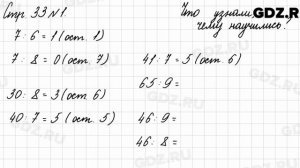 Стр. 33 №1.
Что узнали
чему научились?
GDZ.R
7 : 6 = 1 (ост. 1)
7 : 8 = 0 (ост. 7)
30 : 8 = 3 (ост. 6)
40 : 7 = 5 (ост. 5)
41 : 7 = 5 (ост. 6)
65 : 9 =
46 : 9 =
46 : 8 =
GDZ.R